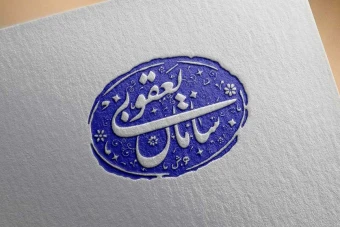 سامان یعقوبی